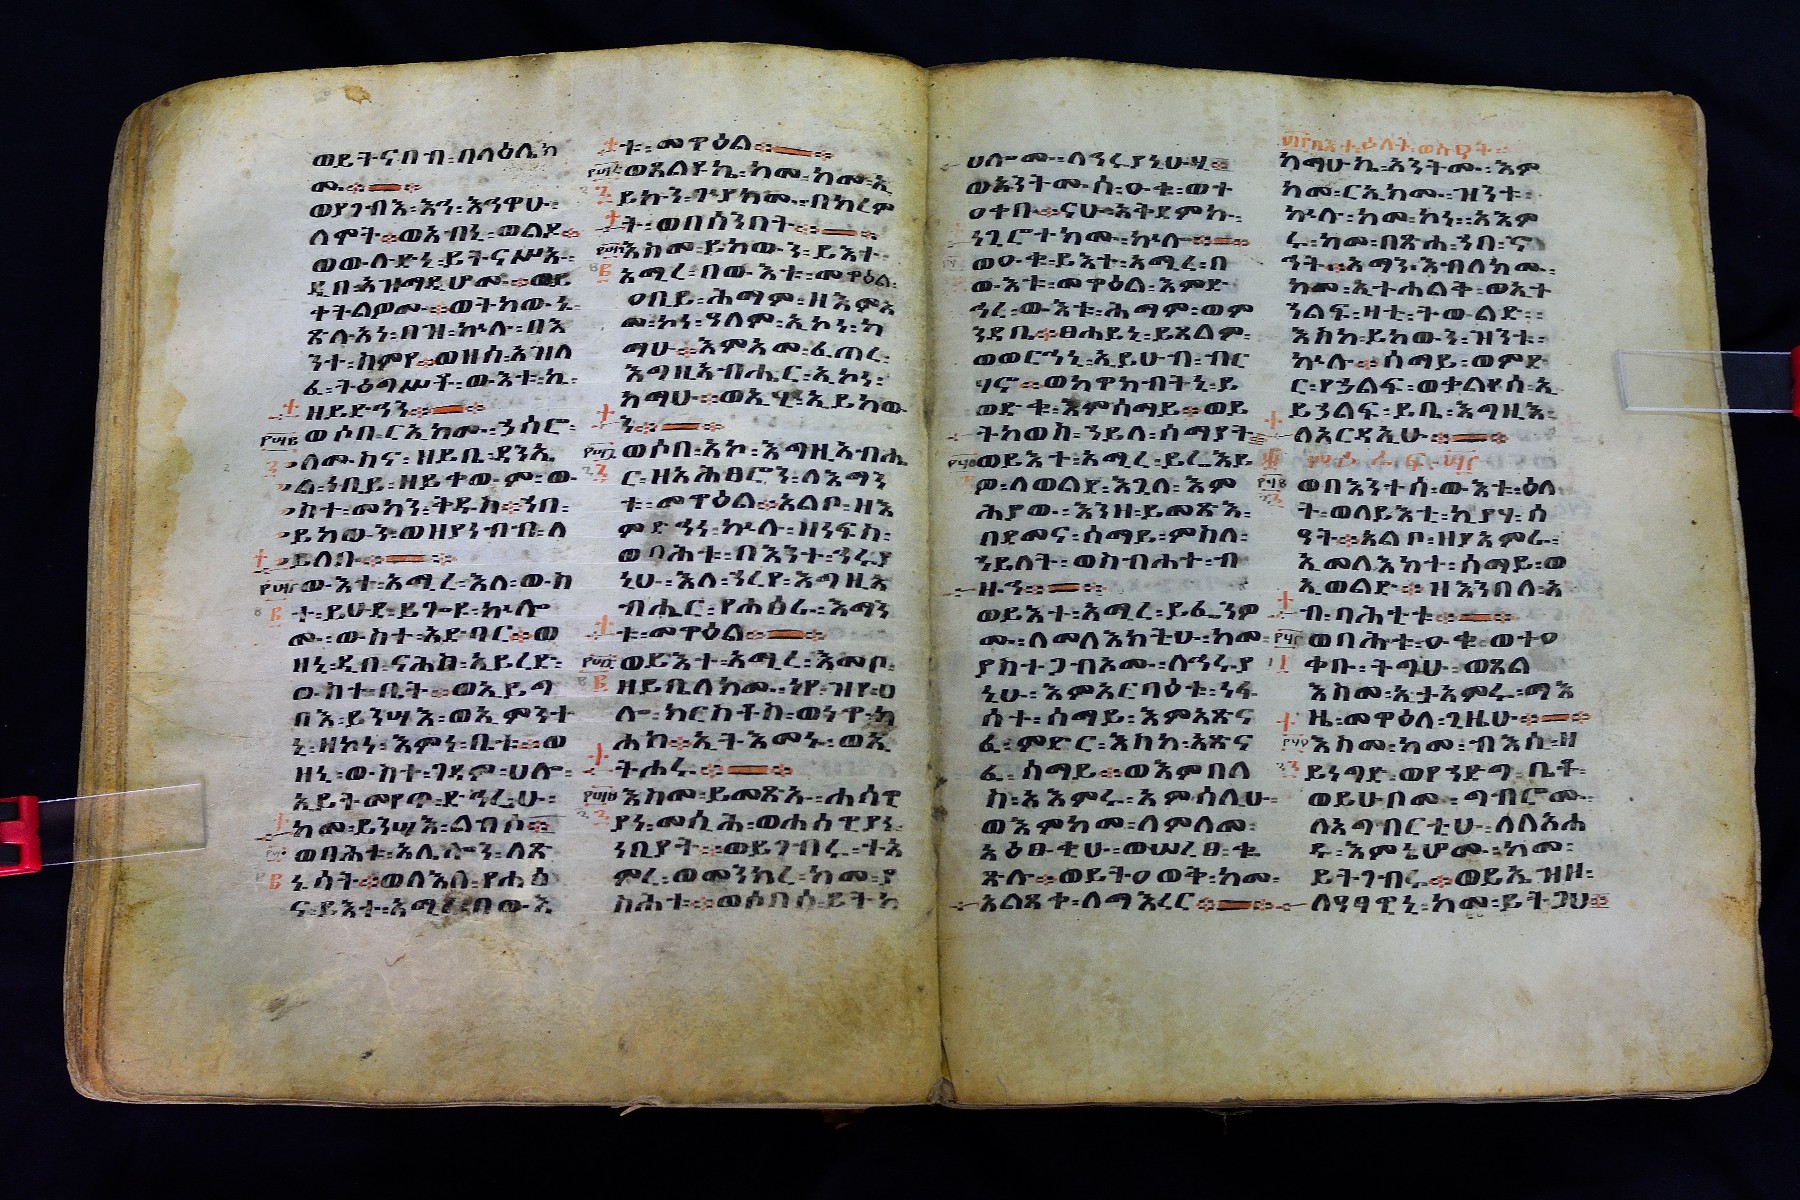 ወይትናበብ፡በሳዕሌክ
ሙ፡
ወያገብእ፡እኅ፡እኅዋሁ፡
ለሞት፡ወአብኒ፡ወልዶ፡
ወውሉድኒ፡ይትናሥኡ፡
ዲበ፡አዝማዲሆሙ፡ወይ
ቀትልዎሙ፡ወትከውኑ፡
ጽሉአነ፡በዝ፡ኵሉ፡በእ
ንተ፡ስምየ፡ወዘሰ፡አዝለ
ፈ፡ትዕግሥቶ፡ውእቱ፡ኬ፡
ዘይድኅን፡
ወሶበ፡ርኢክሙ፡ኅሰሮ፡
ለሙስና፡ዘይቤ፡ዳንኤ
ል፡ነቢይ፡ዘይቀውም፡ው
ስተ፡መካን፡ቅዱስ፡ኀበ፡
ይከውን፡ወዘያነብብ፡ለ
ይለቡ፡
ውእተ፡አሚረ፡እለ፡ውስ
ተ፡ይሁዳ፡ይጕየዩ፡ኵሎ
ሙ፡ውስተ፡አድባር፡ወ
ዘኒ፡ዲበ፡ናሕስ፡አይረድ፡
ውስተ፡ቤት፡ወኢይግ
በእ፡ይንሣእ፡ወኢምንተ
ኒ፡ዘኮነ፡እምነ፡ቤቱ፡ወ
ዘኒ፡ውስተ፡ገዳም፡ሀሎ፡
ኢይትመየጥ፡ድኅሬሁ፡
ከመ፡ይንሣእ፡ልብሶ፡
ወባሕቱ፡አሌሎን፡ለጽ
ኑሳት፡ወለእለ፡የሐፅ
ና፡ይእተ፡አሚረ፡በውእ
ቱ፡መዋዕል፡
ወጸልዩ፡ኬ፡ከመ፡ከመ፡ኢ
ይኩን፡ጕያክሙ፡በክረም
ት፡ወበሰንበት፡
እስመ፡ይከውን፡ይእተ፡
አሚረ፡በውእቱ፡መዋዕል፡
ዐቢይ፡ሕማም፡ዘእምአ
መ፡ኮነ፡ዓለም፡ኢኮነ፡ከ
ማሁ፡እምአመ፡ፈጠረ፡
እግዚአብሔር፡ኢኮነ፡
ከማሁ፡ወኢሂ፡ኢይከው
ን፡
ወሶበ፡አኮ፡እግዚአብሔ
ር፡ዘአሕፀሮን፡ለእማን
ቱ፡መዋዕል፡አልቦ፡ዘእ
ምድኅነ፡ኵሉ፡ዘነፍስ፡
ወባሕቱ፡በእንተ፡ኅሩያ
ኒሁ፡እለ፡ኀረየ፡እግዚአ
ብሔር፡የሐፅራ፡እማን
ቱ፡መዋዕል፡
ወይእተ፡አሚረ፡እመቦ
ዘይቤለክሙ፡ነየ፡ዝየ፡ሀ
ሎ፡ክርስቶስ፡ወነዋ፡ከ
ሐከ፡ኢትእመኑ፡ወኢ
ትሐሩ፡
እስመ፡ይመጽኡ፡ሐሰዊ
ያነ፡መሲሕ፡ወሐሰዊያነ፡
ነቢያት፡ወይገብሩ፡ተአ
ምረ፡ወመንክረ፡ከመ፡ያ
ስሕቱ፡ወሶበሰ፡ይትከ
ሀሎሙ፡ለኅሩያኒሁ፡ሂ፡
ወአንትሙ፡ሰ፡ዑቁ፡ወተ
ዐቀቡ፡ናሁ፡አቅደምኩ፡
ነጊሮተክሙ፡ኵሎ፡
ወዑቁ፡ይእተ፡አሚረ፡በ
ውእቱ፡መዋዕል፡እምድ
ኅረ፡ውእቱ፡ሕማም፡ወም
ንዳቤ፡ፀሐይኒ፡ይጸልም፡
ወወርኅኒ፡ኢይሁብ፡ብር
ሃኖ፡ወከዋክብትኒ፡ይ
ወድቁ፡እምሰማይ፡ወይ
ትከወስ፡ኀይለ፡ሰማያት፡
ወይእተ፡አሚረ፡ይሬእይ
ዎ፡ለወልደ፡እጓለ፡እም
ሕያው፡እንዘ፡ይመጽእ፡
በደመና፡ሰማይ፡ምስለ፡
ኀይለት፡ወስብሐተ፡ብ
ዙኅ፡
ወይእተ፡አሚረ፡ይፌንዎ
ሙ፡ለመላእክቲሁ፡ከመ፡
ያስተጋብኦሙ፡ለኅሩያ
ኒሁ፡እምአርባዕቱ፡ነፋ
ሳተ፡ሰማይ፡እምአጽና
ፈ፡ምድር፡እስከ፡አጽና
ፈ፡ሰማይ፡ወእምበለ
ስ፡አእምሩ፡አምሳሊሁ፡
ወእምከመ፡ለምለመ፡
አዕፁቂሁ፡ወሠረፀ፡ቈ
ጽሉ፡ወይትዐወቅ፡ከመ፡
አልጸቀ፡ለማእረር፡
ከማሁ፡ኬ፡አንትሙ፡እም
ከመ፡ርኢክሙ፡ዝንተ፡
ኵሉ፡ከመ፡ኮነ፡አእም
ሩ፡ከመ፡በጽሐ፡ኀበ፡ኆ
ኅት፡አማን፡እብለክሙ፡
ከመ፡ኢተሐልቅ፡ወኢተ
ኀልፍ፡ዛቲ፡ትውልድ፡
እስከ፡ይከውን፡ዝንቱ፡
ኵሉ፡ሰማይ፡ወምድ
ር፡የኃልፍ፡ወቃልየሰ፡ኢ
ይኀልፍ፡ይቤ፡እግዚእ፡
ለአርዳኢሁ፡
ወበእንተሰ፡ውእቱ፡ዕለ
ት፡ወለይእቲ፡ኪያሃ፡ሰ
ዓት፡አልቦ፡ዘያአምራ፡
ኢመላእክተ፡ሰማይ፡ወ
ኢወልድ፡ዘእንበለ፡አ
ብ፡ባሕቲቱ፡
ወባሕቱ፡ዑቁ፡ወተዐ
ቀቡ፡ትግሁ፡ወጸልዩ
እስመ፡ኢታአምሩ፡ማእ
ዜ፡መዋዕለ፡ጊዜሁ፡
እስመ፡ከመ፡ብእሲ፡ዘ
ይነግድ፡ወየኀድግ፡ቤቶ፡
ወይሁቦሙ፡ግብሮሙ፡
ለአግብርቲሁ፡ለለአሐ
ዱ፡እምኔሆሙ፡ከመ፡
ይትገብሩ፡ወይኤዝዞ፡
ለዓፃዊኒ፡ከመ፡ይትጋህ፡